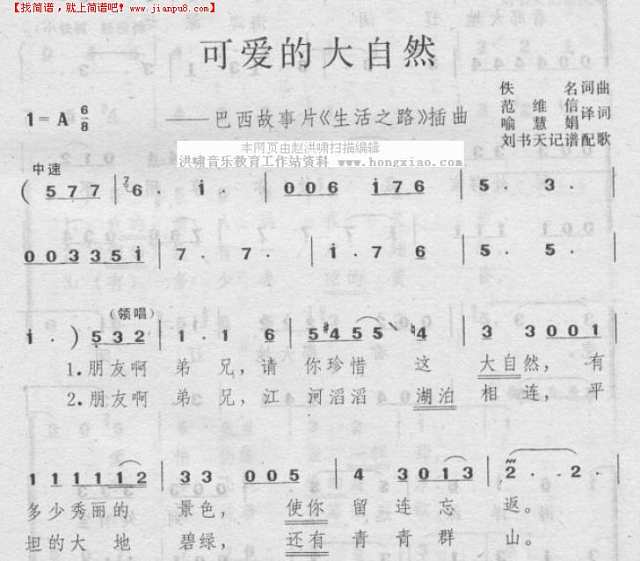 【找简谱，就上简谱吧！www.jianpu8.com】
可爱的大自然
佚 名 词曲
范 维 信
喻 慧 娟 译词
刘书天记谱配歌
1=A 6/8
——巴西故事片《生活之路》插曲
本网页由赵洪啸扫描编辑
洪啸音乐教育工作站资料 www.hongxiao.com
中速
( 5 7 7 7 6 · i · 0 0 6 i 7 6 5 · 3 ·
0 0 3 3 5 i 7 · 7 · i · 7 6 5 · 5 ·
(领唱)
i · ) 5 3 2 1 · 1 6 5 #4 5 5 ♮4 3 3 0 0 1
1.朋友啊 弟兄,请 你珍惜 这 大自然,有
2.朋友啊 弟兄,江 河滔滔 湖泊 相连,平
1 1 1 1 1 2 3 3 0 0 5 4 3 0 1 3 2 · 2 ·
多少秀丽的 景色, 使你 留连忘 返。
坦的大地 碧绿, 还有 青青群 山。